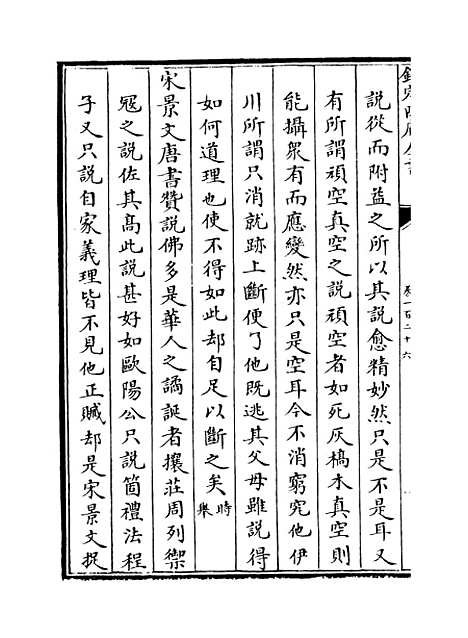 欽定四庫全書
卷一百二十六
說從而附益之所以其說愈精妙然只是不是耳又
有所謂頑空真空之說頑空者如死灰槁木真空則
能攝衆有而應變然亦只是空耳今不消窮究他伊
川所謂只消就跡上斷便了他既逃其父母雖說得
如何道理也使不得如此却自足以斷之矣時舉
宋景文唐書贊說佛多是華人之譎誕者攘莊周列禦
冦之說佐其髙此說甚好如歐陽公只說箇禮法程
子又只說自家義理皆不見他正贓却是宋景文捉